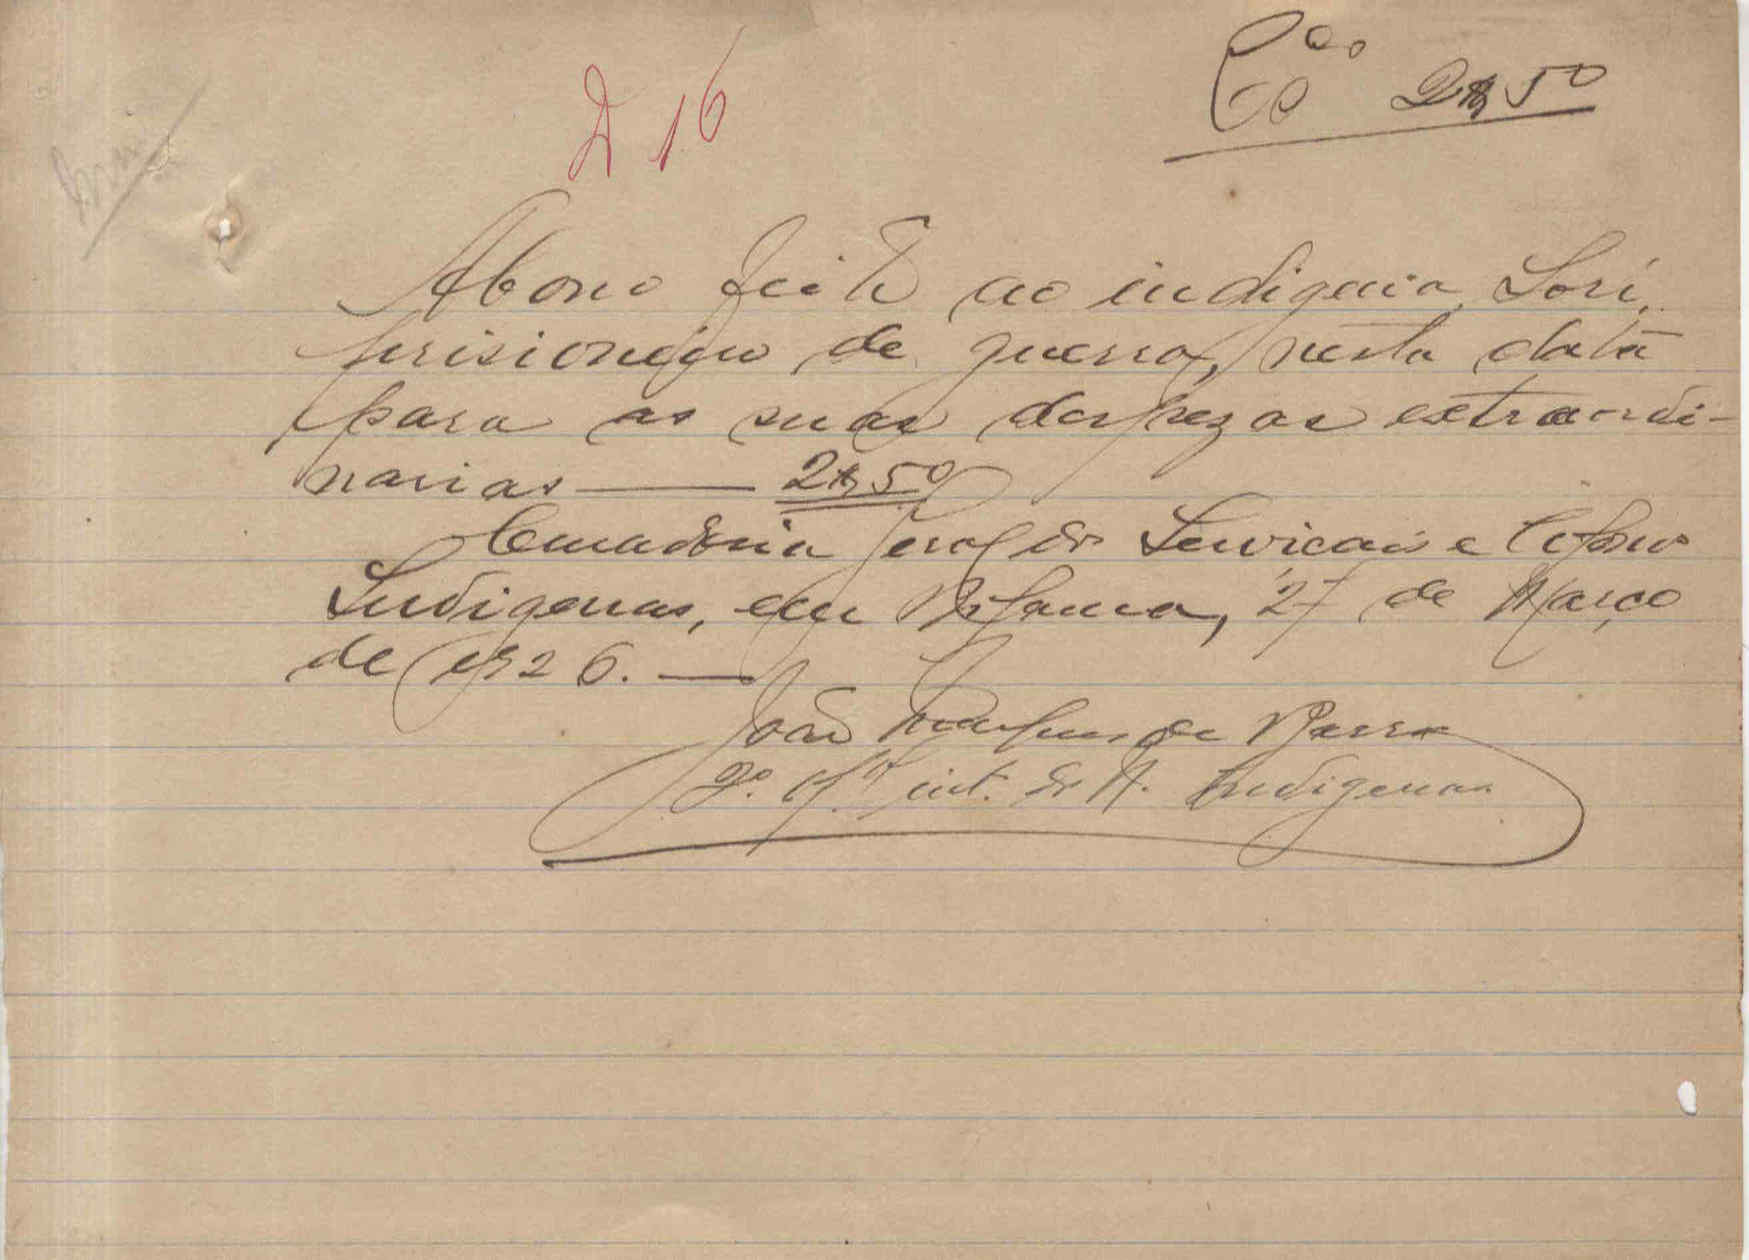 D 16
2$50
Abono feito ao indigena Lori,
prisioneiro de guerra, nesta data
para as suas despezas extraordi-
narias — 2$50
Curadoria geral de Serviçais e Colonos
Indigenas, em Bolama, 27 de Março
de 1926. —
João Marques de Barros
2º. of.al int. de N. Indigenas